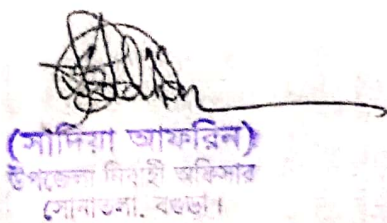 (সাদিয়া আফরিন)
উপজেলা নির্বাহী অফিসার
সোনাতলা, বগুড়া।